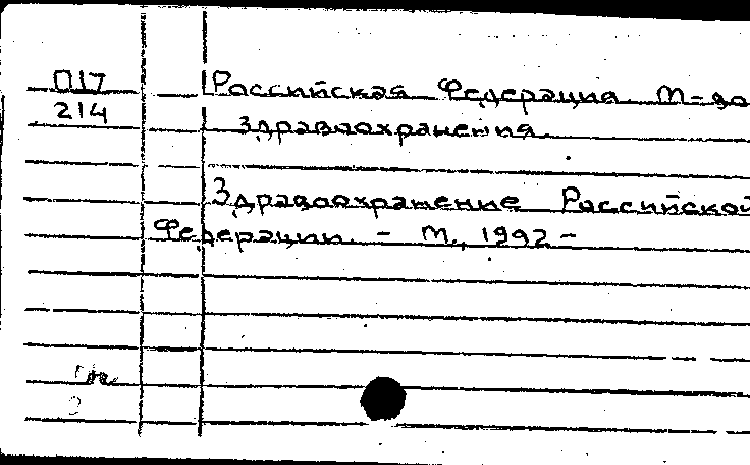 П17 Российская Федерация. М-во
214 здравоохранения.
Здравоохранение Российской
Федерации. - М., 1992 -